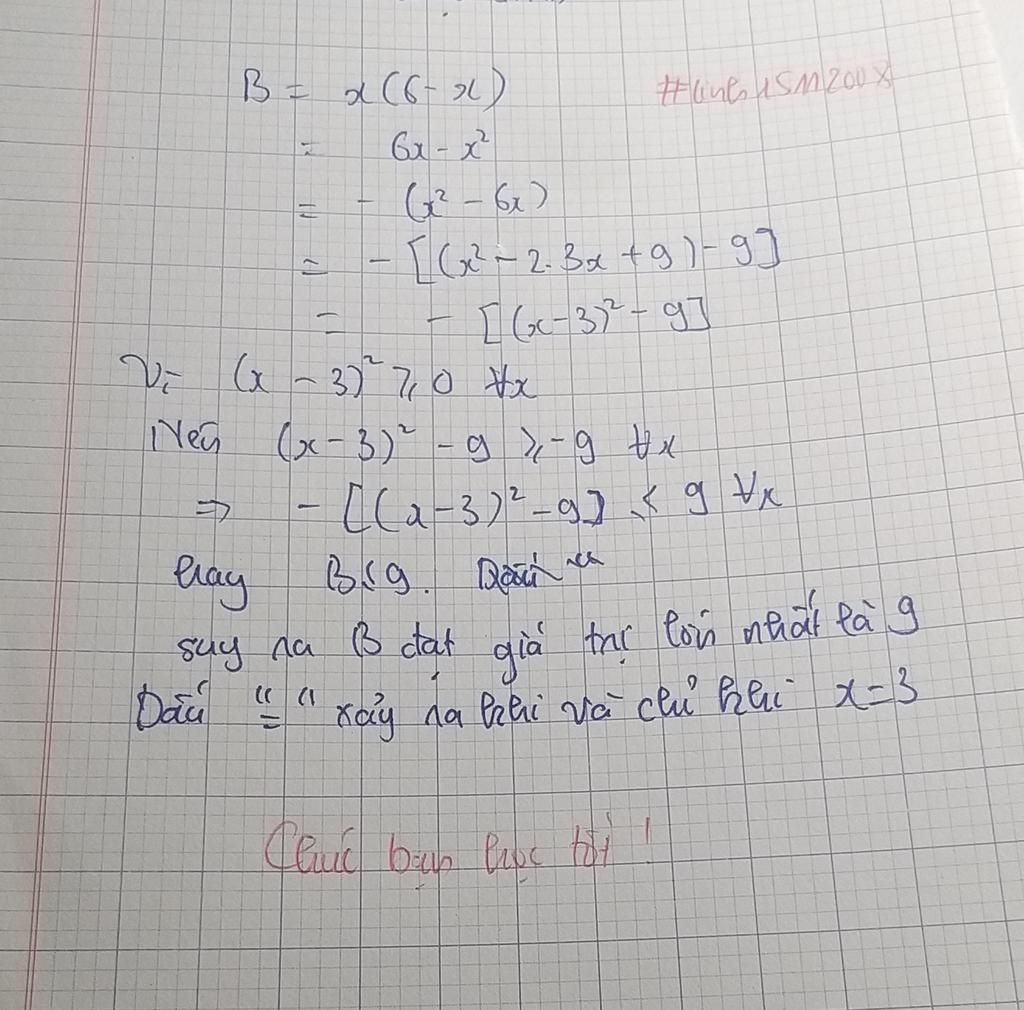 B = x(6-x)
= 6x - x²
= - (x² - 6x)
= - [(x² - 2.3x + 9) - 9]
= - [(x-3)² - 9]
Vì (x - 3)² ≥ 0 ∀x
Nên (x-3)² - 9 ≥ -9 ∀x
⇒ - [(x-3)² - 9] ≤ 9 ∀x
hay B ≤ 9.
suy ra B đạt giá trị lớn nhất là 9
Dấu "=" xảy ra khi và chỉ khi x = 3
Chúc bạn học tốt !